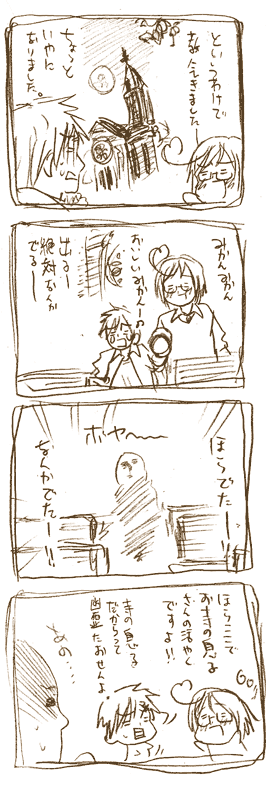 というわけで
教会にきました
ちょっと
いやに
なりました。
みかんみかん
おいしいみかんーの
出るー
絶対なんか
でるー
ほらでたーー!!
ボヤ〜〜
なんかでたー!!
ほらここで
お寺の息子
さんの活やく
ですよ!!
寺の息子
だからって
出来たおせんよ。
あの…